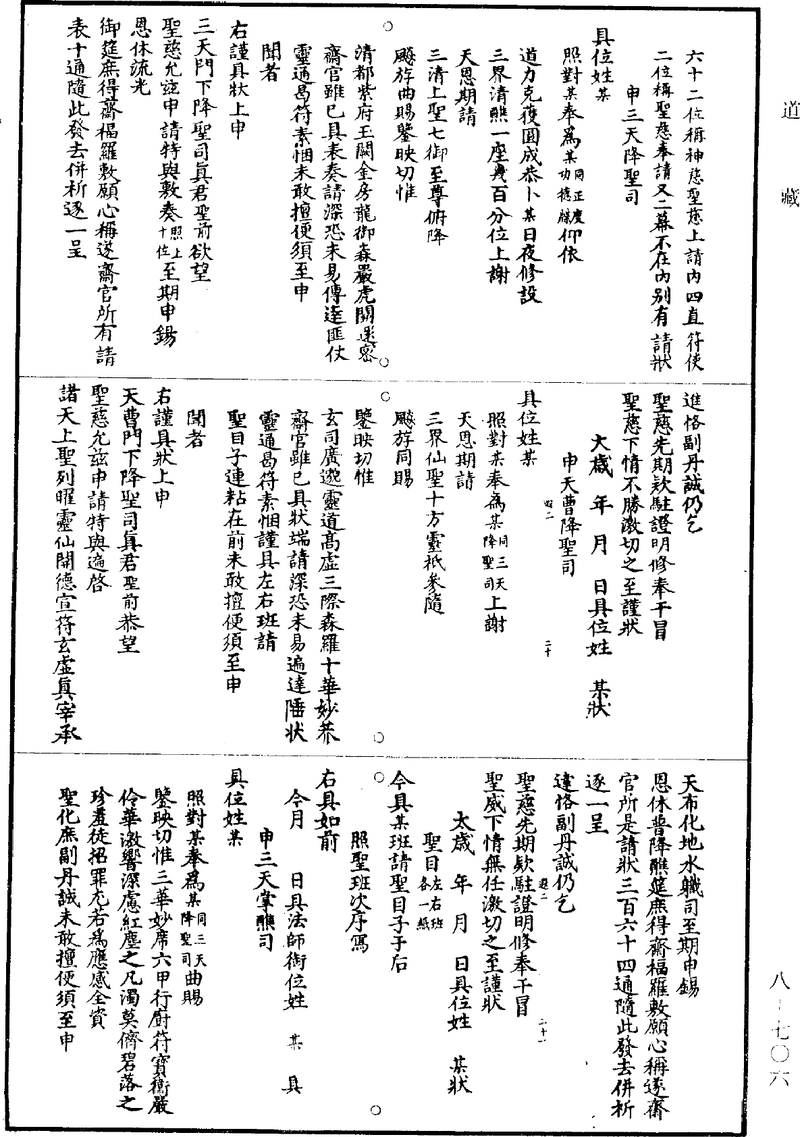 道藏
六十二位稱神慈聖慈上請內四直符使
二位稱聖慈奉請又二幕不在內別有請狀
申三天降聖司
具位姓某
照對某奉為某同正慶功德醮仰依
道力克獲圓成恭卜某日夜修設
三界清醮一座幾百分位上謝
天恩期請
三清上聖七御至尊俯降
飈斿曲賜鑒映切惟
清都紫府玉闕金房龍御森嚴虎關邃密
齋官雖已具表奏請深恐未易傳達匪仗
靈通曷符素悃未敢擅便須至申
聞者
右謹具狀上申
三天門下降聖司真君聖前欲望
聖慈允茲申請特與敷奏照上十位至期申錫
恩休流光
御筵庶得齋福羅敷願心稱遂齋官所有請
表十通隨此發去併祈逐一呈
進恪副丹誠仍乞
聖慈先期欵駐證明修奉干冒
聖慈下情不勝激切之至謹狀
太歲 年 月 日具位姓 某狀
申天曹降聖司
四二
二十
具位姓某
照對某奉為某同三天降聖司上謝
天恩期請
三界仙聖十方靈祇參隨
飈斿同賜
鑒映切惟
玄司廣邈靈道高虛三際森羅十華妙恭
齋官雖已具狀端請深恐未易遍達陲狀
靈通曷符素悃謹具左右班請
聖目子連粘在前未敢擅便須至申
聞者
右謹具狀上申
天曹門下降聖司真君聖前恭望
聖慈允茲申請特與遍啓
諸天上聖列曜靈仙開德宣符玄虛真宰承
天布化地水職司至期申錫
恩休普降醮筵庶得齋福羅敷願心稱遂齋
官所是請狀三百六十四通隨此發去併祈
逐一呈
達恪副丹誠仍乞
聖慈先期欵駐證明修奉干冒
聖威下情無任激切之至謹狀
二十一
太歲 年 月 日具位姓 某狀
聖目左右班各一紙
今具某班請聖目子于后
照聖班次序寫
右具如前
今月 日具法師銜位姓 某 具
申三天掌醮司
具位姓某
照對某奉為某同三天降聖司曲賜
鑒映切惟三華妙席六甲行廚符寶衛嚴
伶華激響深慮紅塵之凡濁莫儕碧落之
珍羞徒招罪尤若為應感全資
聖化庶副丹誠未敢擅便須至申
八-七〇六